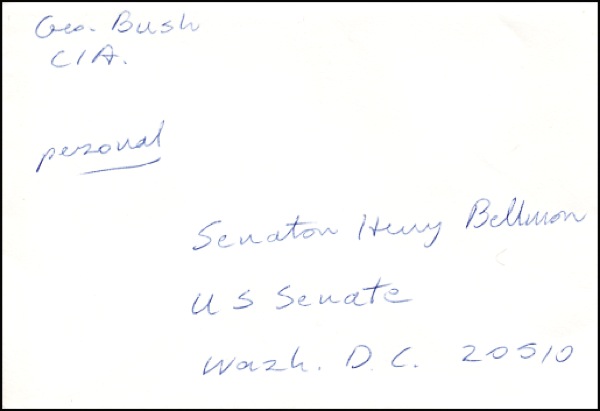 Geo. Bush
CIA.
personal
Senator Henry Bellmon
US Senate
Wash. D.C. 20510